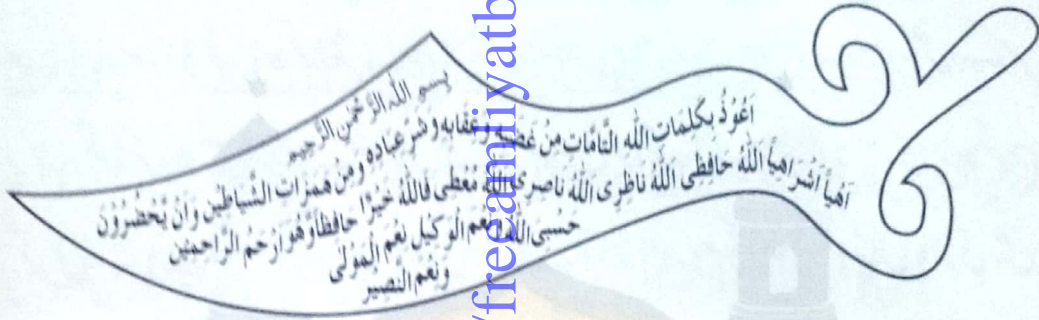 بسم الله الرحمن الرحيم
اَعُوْذُ بِكَلِمَاتِ اللهِ التَّامَّاتِ مِنْ غَضَبِهِ وَعِقَابِهِ وَشَرِّ عِبَادِهِ وَمِنْ هَمَزَاتِ الشَّيَاطِيْنِ وَاَنْ يَّحْضُرُوْنَ
اَهْيًا اَشْرَاهِيًا اَللهُ حَافِظِى اَللهُ نَاظِرِى اَللهُ نَاصِرِى اَللهُ مُعْطِى فَاللهُ خَيْرًا حَافِظًا وَّهُوَ اَرْحَمُ الرَّاحِمِيْنَ
حَسْبِىَ اللهُ نِعْمَ الْوَكِيْل نِعْمَ الْمَوْلٰى
وَنِعْمَ النَّصِيْر
/freeamliyatb